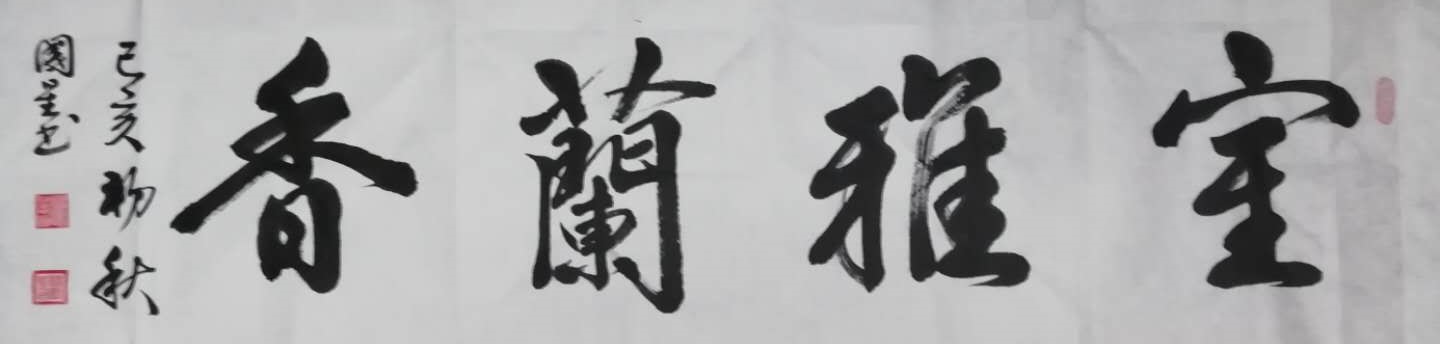 室雅蘭香
己亥初秋
國星书